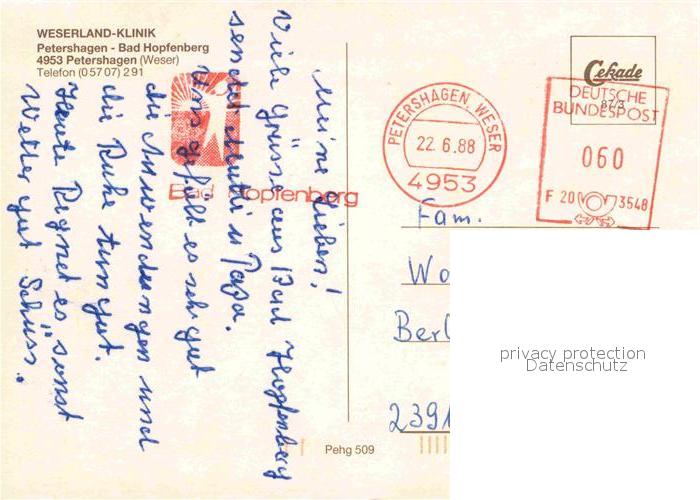 WESERLAND-KLINIK
Petershagen - Bad Hopfenberg
4953 Petershagen (Weser)
Telefon (0 57 07) 2 91
Meine Lieben!
Viele Grüsse aus Bad Hopfenberg
sendet Mutti u Papa.
Uns gefällt es sehr gut
die Anwendungen und
die Ruhe tun gut.
Heute Regnet es sonst
Wetter gut Schuss.
Bad Hopfenberg
PETERSHAGEN, WESER
22.6.88
4953
Cekade
87/3
DEUTSCHE
BUNDESPOST
060
F 20 3548
Fam.
Wo
Berl
2391
privacy protection
Datenschutz
Pehg 509